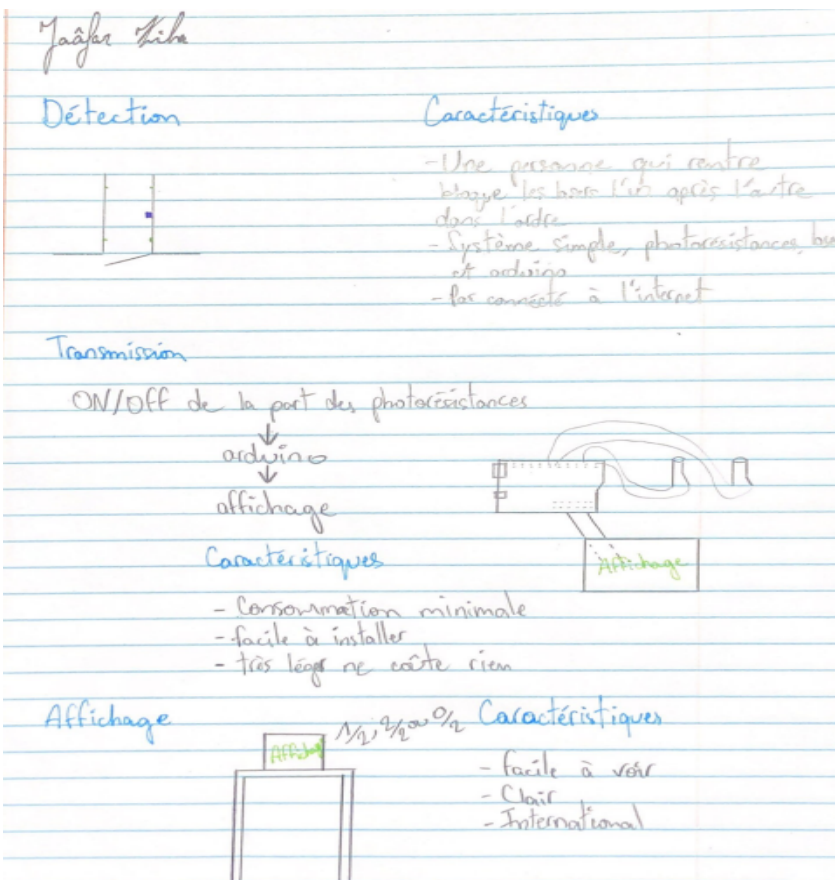 Jaâfar
Détection
Caractéristiques
- Une personne qui rentre
bloque les l'un après l'autre
dans l'ordre
- Système simple, photorésistances,
et arduino
- Pas connecté à l'internet
Transmission
ON/OFF de la part des photorésistances
arduino
affichage
Affichage
Caractéristiques
- Consommation minimale
- facile à installer
- très léger ne coûte rien
Affichage
Affichage
1/2, 2/2 ou 0/2
Caractéristiques
- facile à voir
- Clair
- International